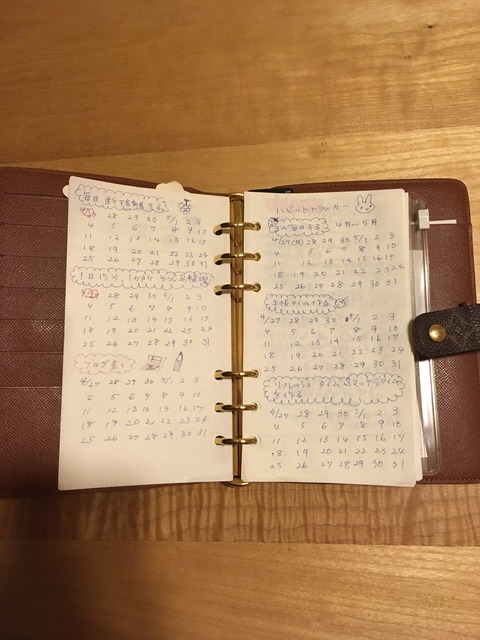 毎日
4/27 28 29 30 5/1 2 3
4 5 6 7 8 9 10
11 12 13 14 15 16 17
18 19 20 21 22 23 24
25 26 27 28 29 30 31
1日15分、1か所
4/27 28 29 30 5/1 2 3
4 5 6 7 8 9 10
11 12 13 14 15 16 17
18 19 20 21 22 23 24
25 26 27 28 29 30 31
ブログ書く
4/27 28 29 30 5/1 2 3
4 5 6 7 8 9 10
11 12 13 14 15 16 17
18 19 20 21 22 23 24
25 26 27 28 29 30 31
ハビットトラッカー
毎日する 4月〜5月
4/27(月) 28 29 30 5/1 2 3
4 5 6 7 8 9 10
11 12 13 14 15 16 17
18 19 20 21 22 23 24
25 26 27 28 29 30 31
手帳タイム作る
4/27 28 29 30 5/1 2 3
4 5 6 7 8 9 10
11 12 13 14 15 16 17
18 19 20 21 22 23 24
25 26 27 28 29 30 31
リフレッシュタイム、スイーツタイム
を作る
4/27 28 29 30 5/1 2 3
4 5 6 7 8 9 10
11 12 13 14 15 16 17
18 19 20 21 22 23 24
25 26 27 28 29 30 31